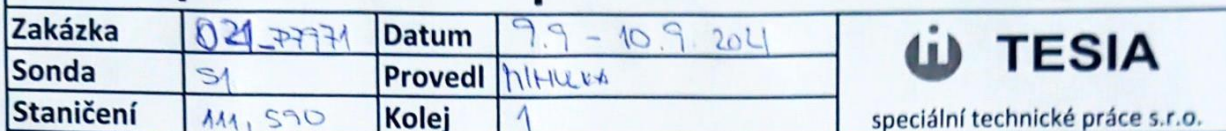 Zakázka 021_P7971 Datum 9.9 - 10.9. 2021 TESIA
Sonda S1 Provedl MIHULKA
Staničení 111,590 Kolej 1 speciální technické práce s.r.o.